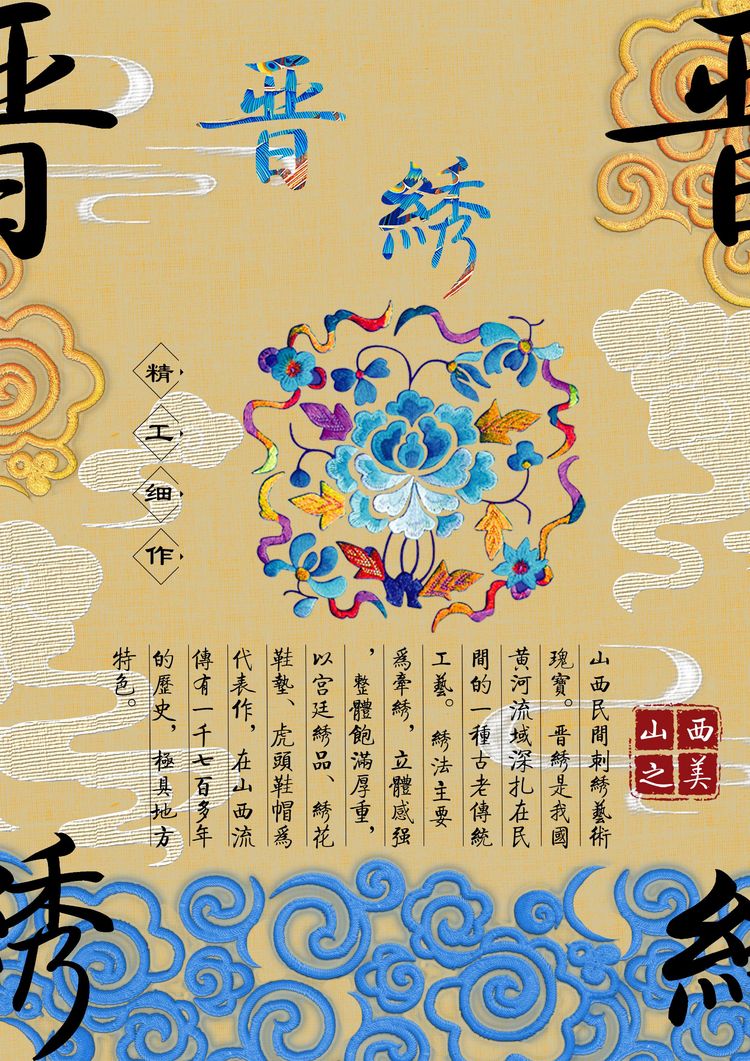 晋
晋
晋
綉
精工细作
山西民間刺綉藝術
瑰寶。晋綉是我國
黃河流域深扎在民
間的一種古老傳統
工藝。綉法主要
爲牽綉，立體感强
，整體飽滿厚重，
以宫廷綉品、綉花
鞋墊、虎頭鞋帽爲
代表作，在山西流
傳有一千七百多年
的歷史，極具地方
特色。
山西
之美